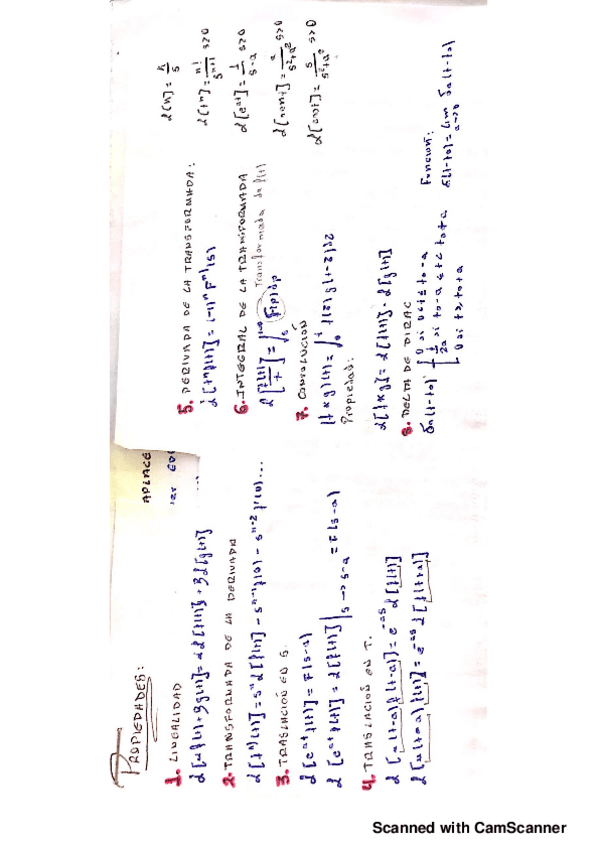 PROPIEDADES:
1. LINEALIDAD
ℒ[αf(t)+βg(t)]=αℒ[f(t)]+βℒ[g(t)]
2. TRANSFORMADA DE LA DERIVADA
ℒ[fⁿ(t)]=sⁿℒ[f(t)]-sⁿ⁻¹f(0)-sⁿ⁻²f'(0)...
3. TRASLACIÓN EN S.
ℒ[eᵃᵗf(t)]=F(s-a)
ℒ[eᵃᵗf(t)]=ℒ[f(t)]|s→s-a = F(s-a)
4. TRASLACIÓN EN T.
ℒ[u(t-a)f(t-a)]=e⁻ᵃˢℒ[f(t)]
ℒ[u(t-a)f(t)]=e⁻ᵃˢℒ[f(t+a)]
APLACE
5. DERIVADA DE LA TRANSFORMADA:
ℒ[tⁿf(t)]=(-1)ⁿFⁿ(s)
6. INTEGRAL DE LA TRANSFORMADA
ℒ[f(t)/t]=∫ₛ^∞ F(p)dp Transformada de f(t)
7. CONVOLUCIÓN
(f*g)(t)=∫₀ᵗ f(z)g(t-z)dz
Propiedad:
ℒ[f*g]=ℒ[f(t)]·ℒ[g(t)]
8. DELTA DE DIRAC
δa(t-t0) { 0 si 0≤t≤t0-a
1/2a si t0-a≤t≤t0+a
0 si t≥t0+a
Función:
δ(t-t0)=lim a→0 δa(t-t0)
ℒ[k]=k/s
ℒ[tⁿ]=n!/sⁿ⁺¹ s>0
ℒ[eᵃᵗ]=1/s-a s>0
ℒ[senat]=a/s²+a² s>0
ℒ[cosat]=s/s²+a² s>0
Scanned with CamScanner